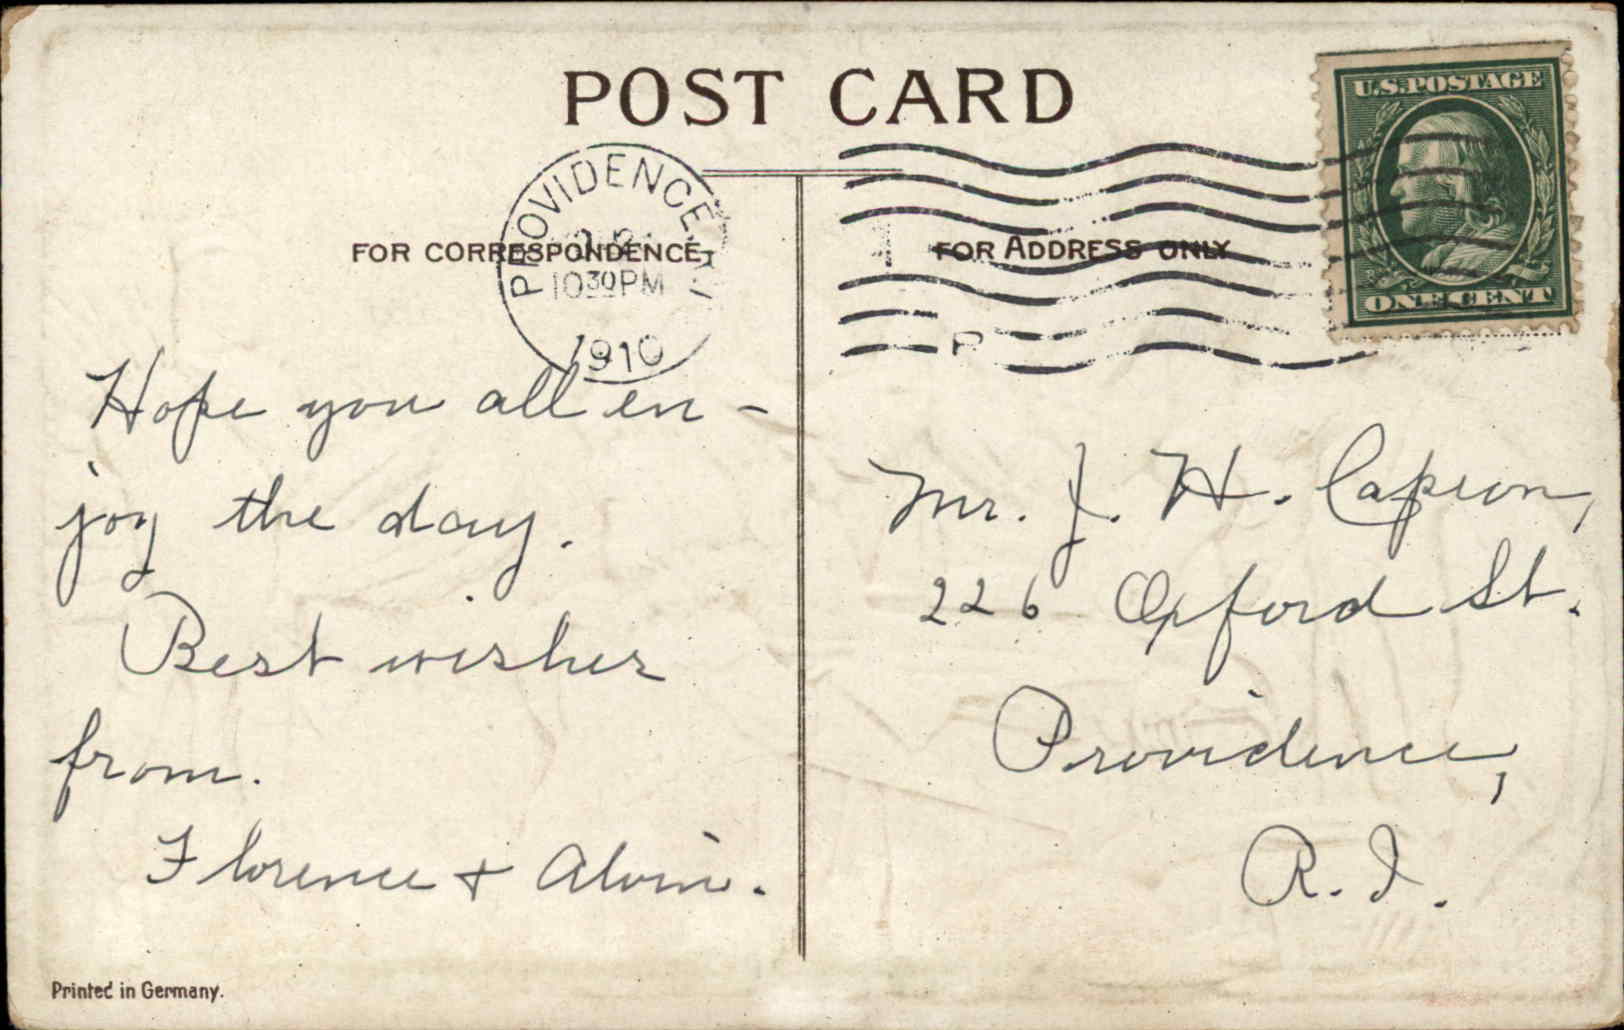 POST CARD
U.S. POSTAGE
ONE CENT
PROVIDENCE
1030PM
1910
FOR CORRESPONDENCE
FOR ADDRESS ONLY
Hope you all en-
joy the day.
Best wishes
from.
Florence + Alvin.
Mr. J. H. Capron,
226 Oxford St.
Providence,
R. I.
Printed in Germany.